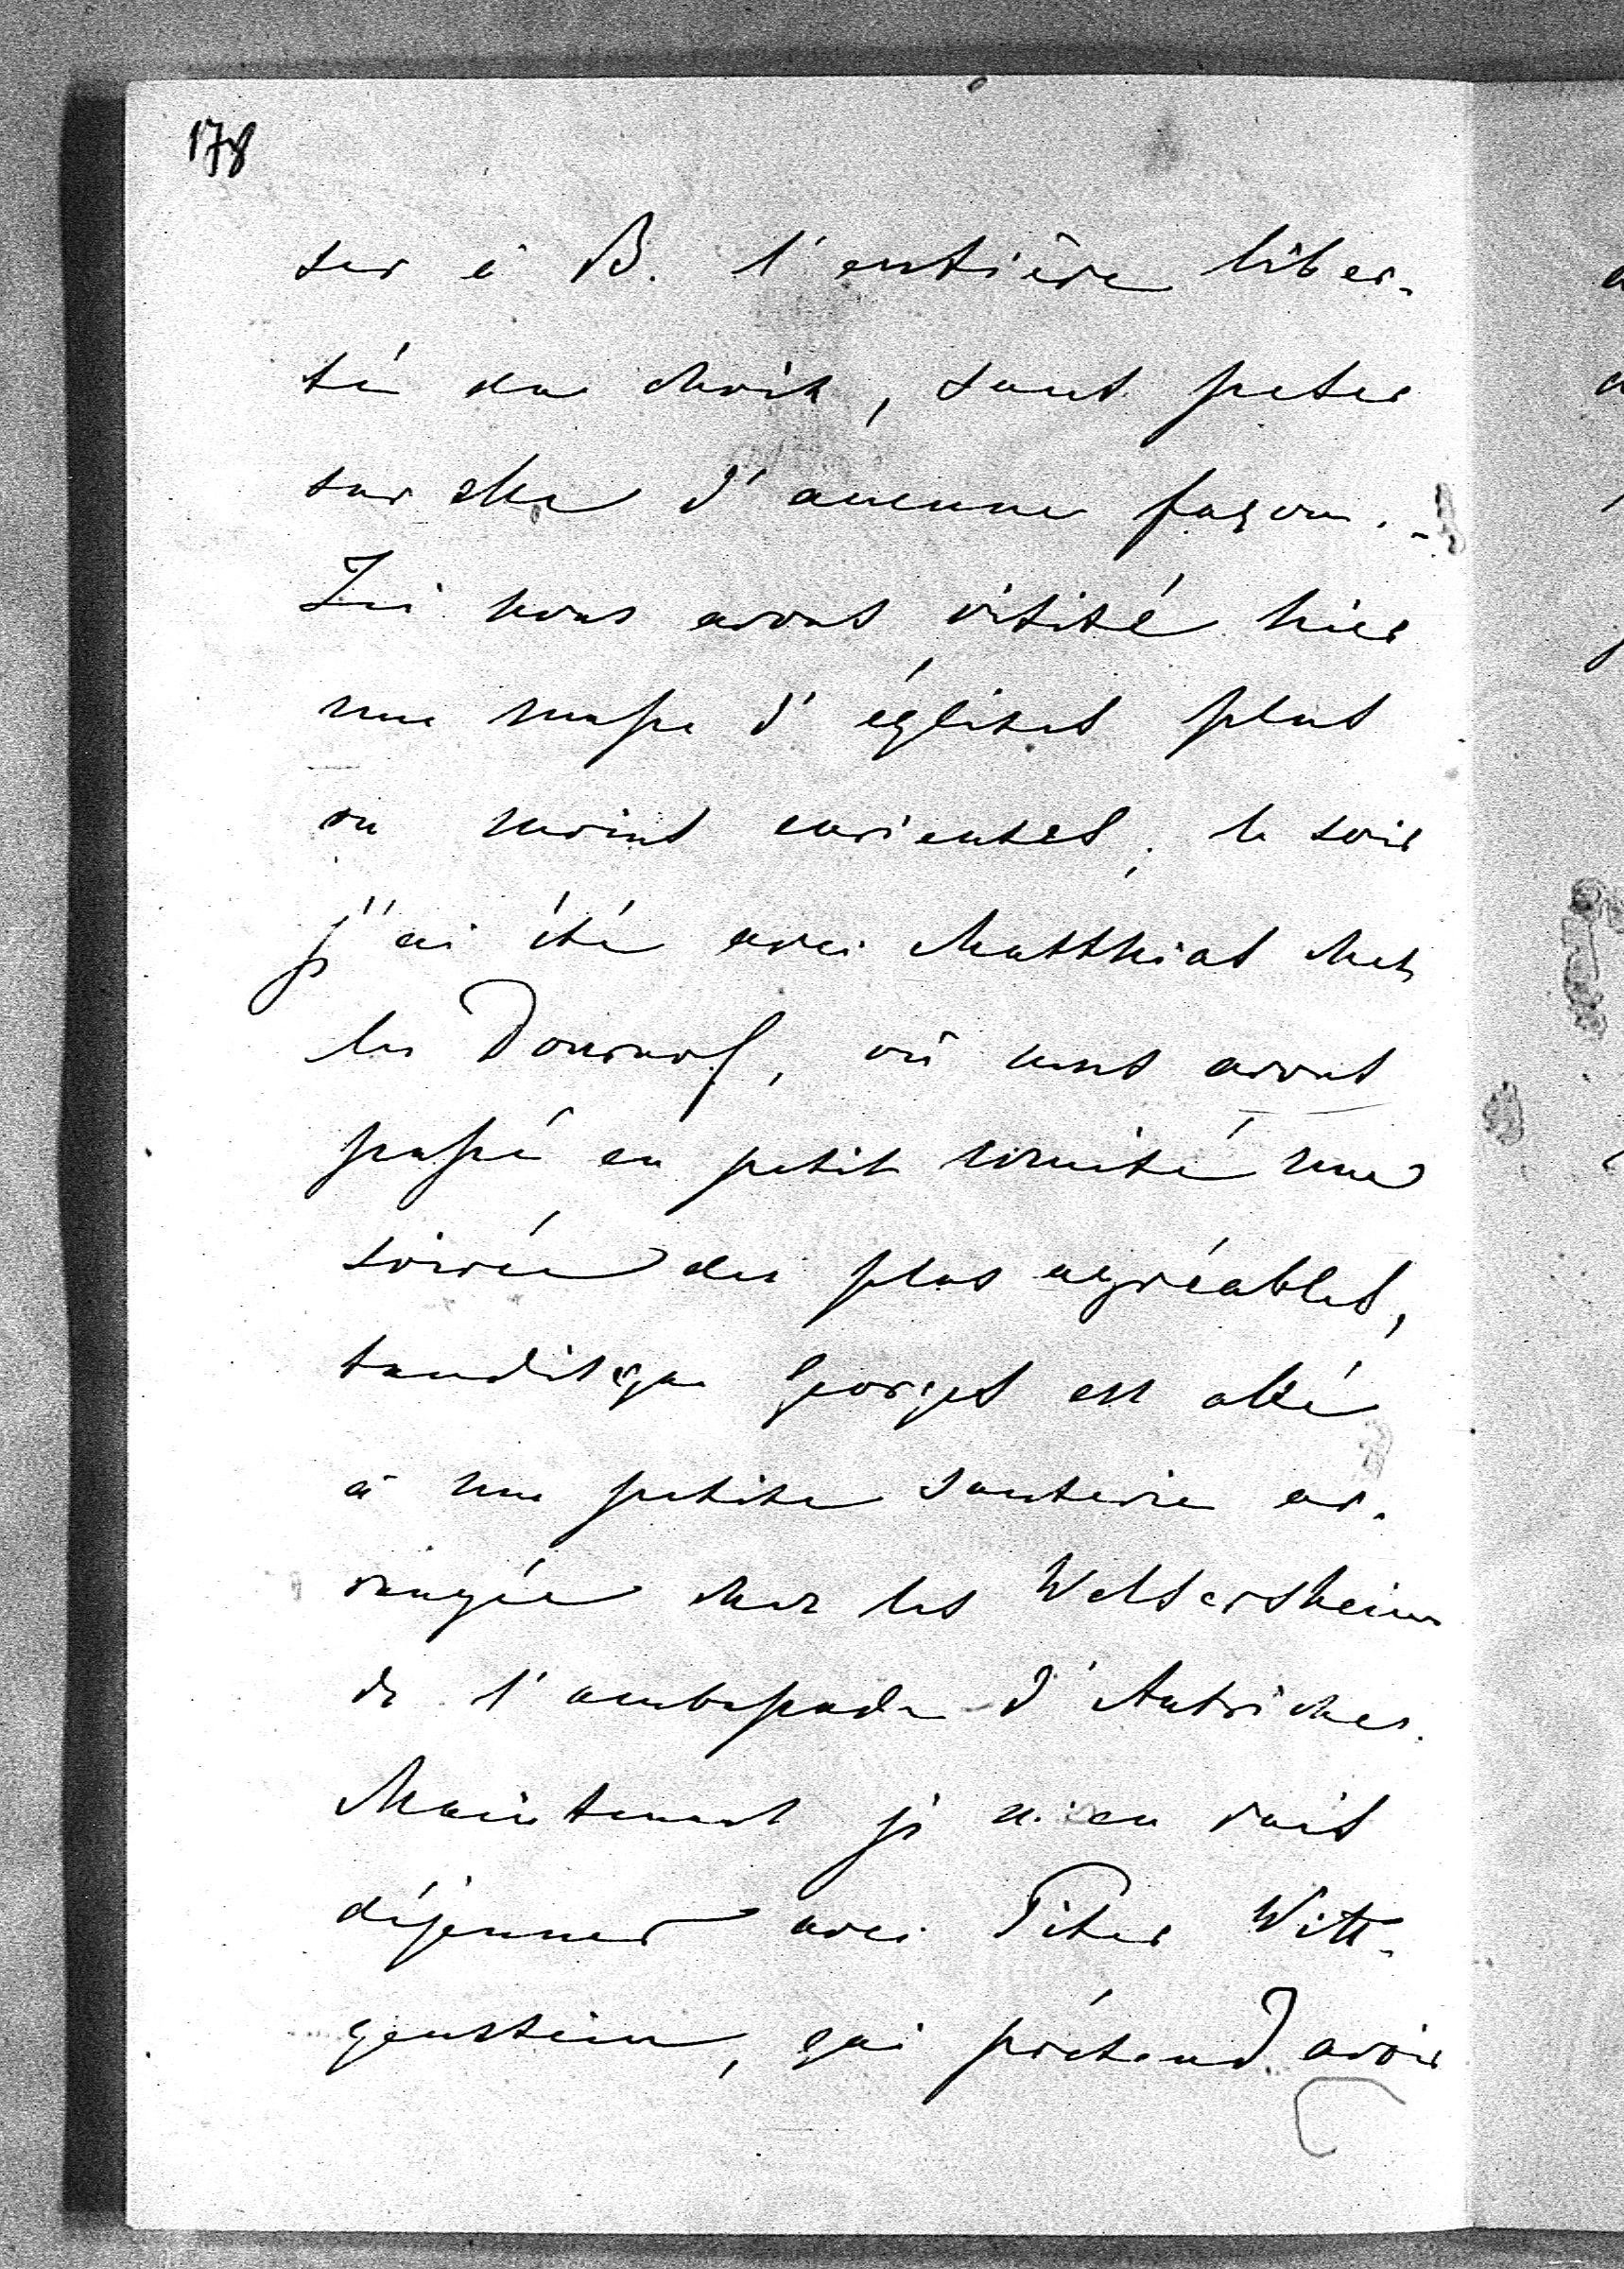 178
ser à B. l'entière liber-
té du choix, sans peser
sur elle d'aucune façon. -
Ici nous avons visité hier
une masse d'églises plus
ou moins curieuses; le soir
j'ai été avec Matthias chez
les Dournof, où nous avons
passé en petit comité une
soirée des plus agréables,
tandisque Georges est allé
à une petite sauterie ar-
rangée chez les Welsersheim
de l'ambassade d'Autriche.
Maintenant je m'en vais
déjeuner avec Piter Witt-
genstein, qui prétend avoir